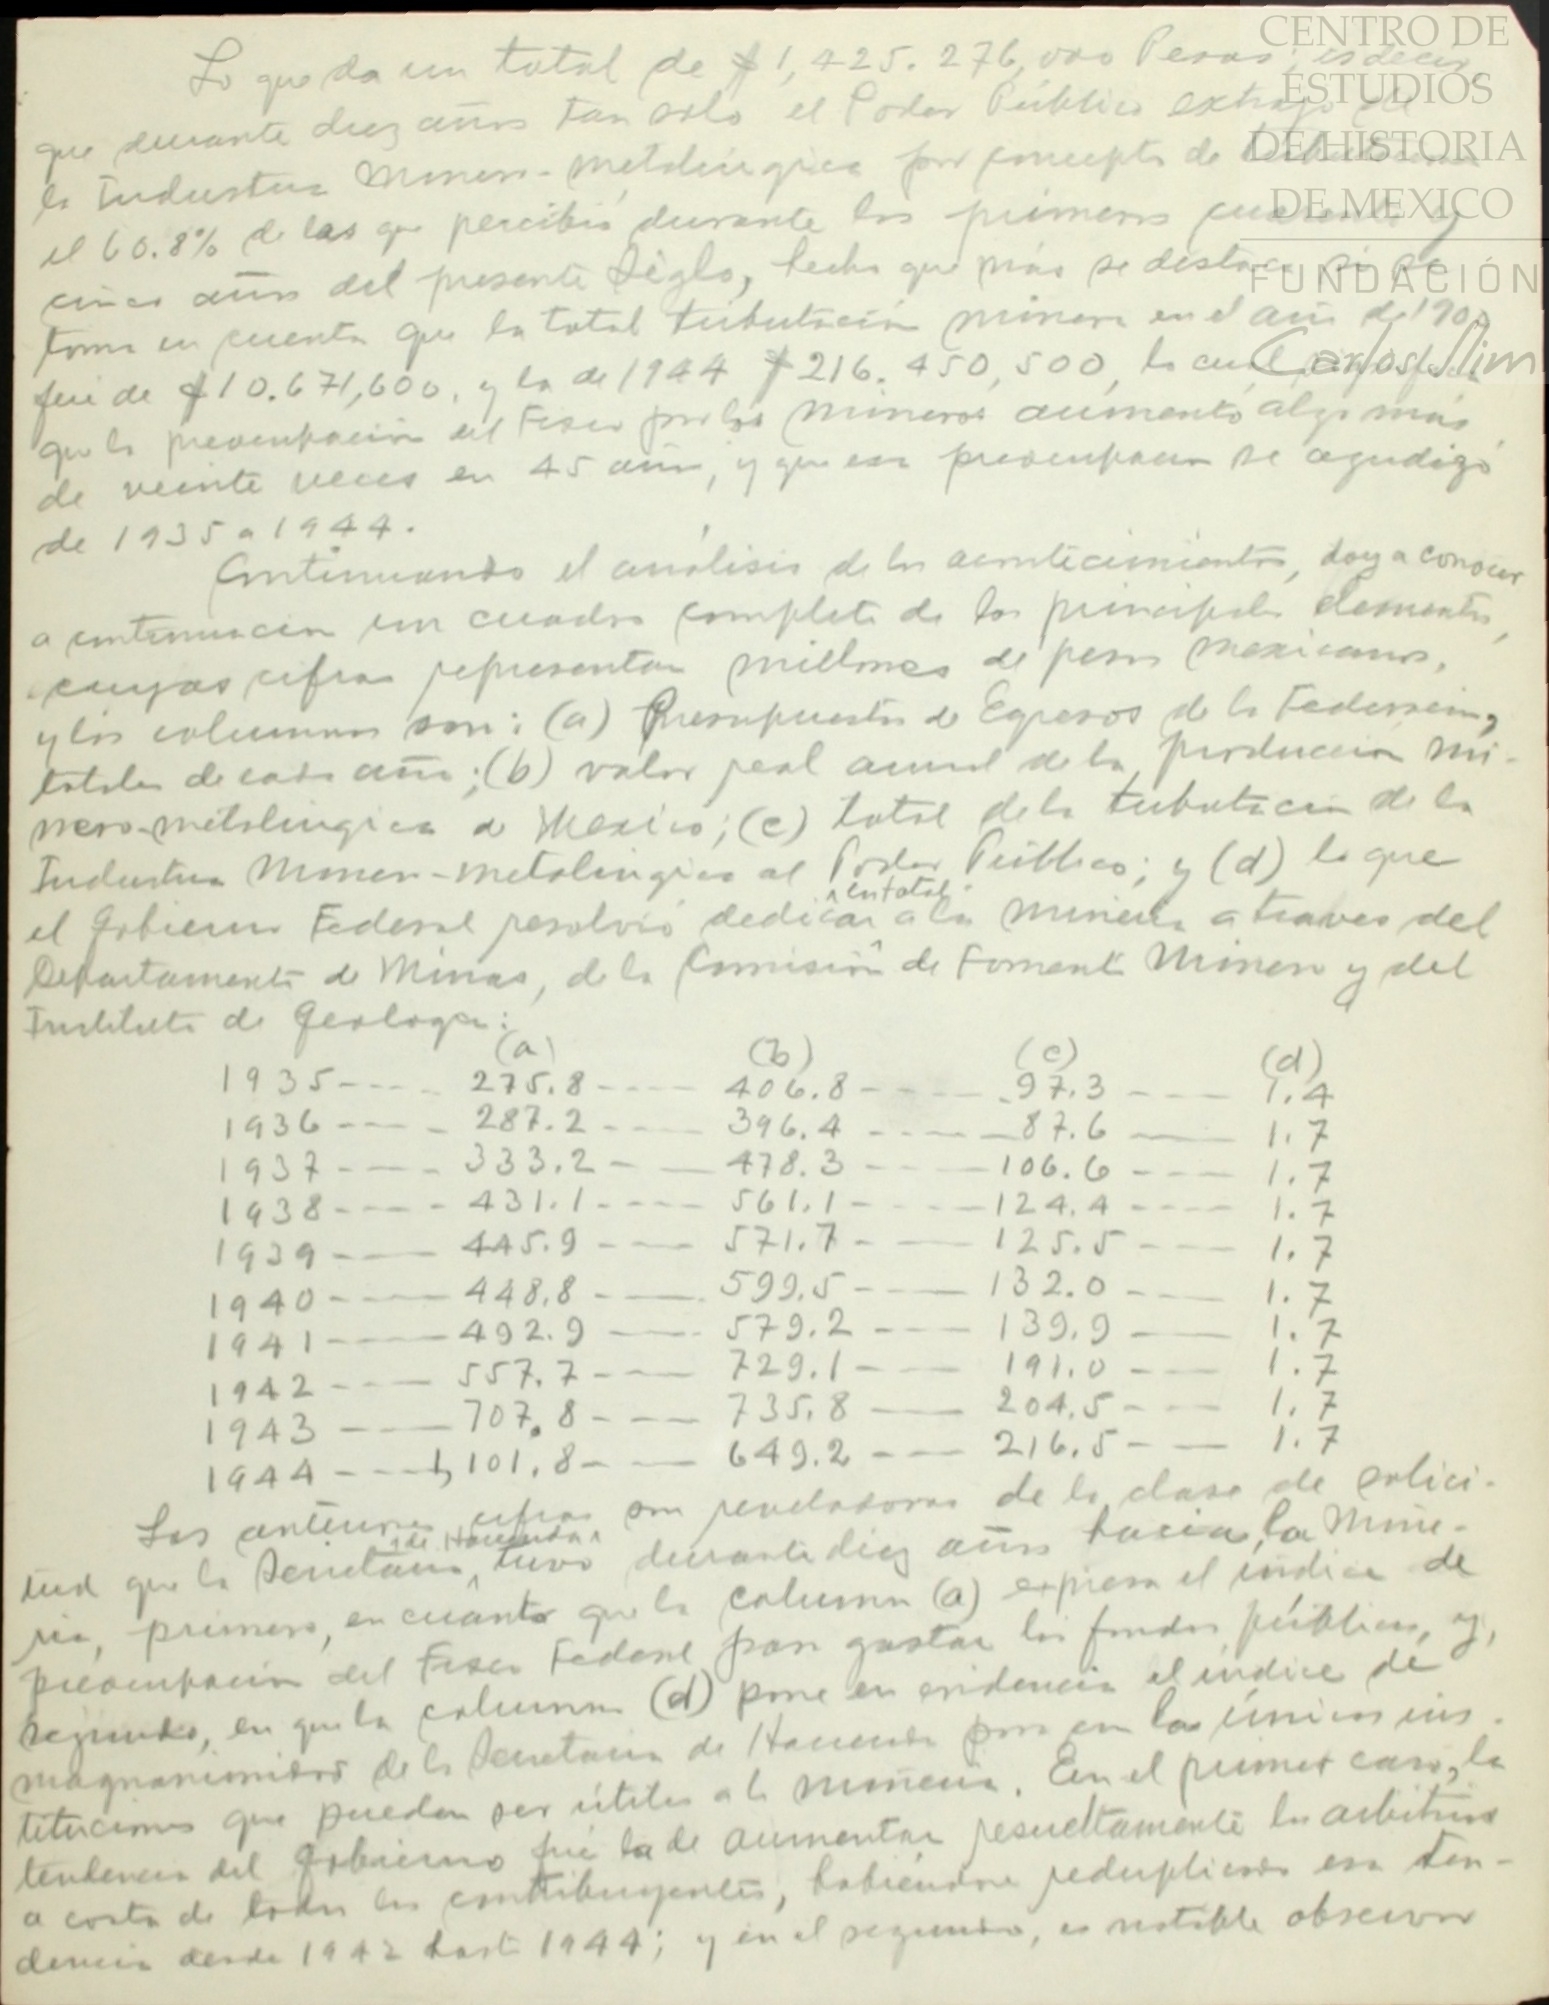 CENTRO DE
ESTUDIOS
DE HISTORIA
DE MEXICO
FUNDACIÓN
Carlos Slim
Lo que da un total de $1,425.276,000 Pesos; es decir
que durante diez años tan solo el Poder Público extrajo de
la Industria Minero-metalúrgica por concepto de
el 60.8% de las que percibió durante los primeros cuarenta y
cinco años del presente Siglo, hecho que más se destaca si se
toma en cuenta que la total tributación minera en el año de 1900
fué de $10.671,600, y la de 1944 $216.450,500, lo cual
que la preocupación del Fisco por los mineros aumentó algo más
de veinte veces en 45 años, y que esa preocupación se agudizó
de 1935 a 1944.
Continuando el análisis de los acontecimientos, doy a conocer
a continuación un cuadro completo de los principales elementos,
cuyas cifras representan millones de pesos mexicanos,
y las columnas son: (a) Presupuestos de Egresos de la Federación,
totales de cada año; (b) valor real anual de la producción mi-
nero-metalúrgica de Mexico; (c) total de la tributación de la
Industria Minero-metalúrgica al Poder Público; y (d) lo que
el Gobierno Federal resolvió dedicar en total a la minería a traves del
Departamento de Minas, de la Comisión de Fomento Minero y del
Instituto de Geología:
(a) (b) (c) (d)
1935---- 275.8---- 406.8---- 97.3---- 1.4
1936---- 287.2---- 396.4---- 87.6---- 1.7
1937---- 333.2---- 478.3---- 106.6---- 1.7
1938---- 431.1---- 561.1---- 124.4---- 1.7
1939---- 445.9---- 571.7---- 125.5---- 1.7
1940---- 448.8---- 599.5---- 132.0---- 1.7
1941---- 492.9---- 579.2---- 139.9---- 1.7
1942---- 557.7---- 729.1---- 191.0---- 1.7
1943---- 707.8---- 735.8---- 204.5---- 1.7
1944---- 1,101.8---- 649.2---- 216.5---- 1.7
Las anteriores cifras son reveladoras de la clase de solici-
tud que la Secretaría de Hacienda tuvo durante diez años hacia la Mine-
ría, primero, en cuánto que la columna (a) expresa el índice de
preocupación del Fisco Federal para gastar los fondos públicos, y,
segundo, en que la columna (d) pone en evidencia el índice de
magnanimidad de la Secretaría de Hacienda para con las únicas ins-
tituciones que puedan ser útiles a la minería. En el primer caso, la
tendencia del Gobierno fué la de aumentar resueltamente los arbitrios
a costa de todos los contribuyentes, habiéndose reduplicado esa ten-
dencia desde 1942 hasta 1944; y en el segundo, es notable observar